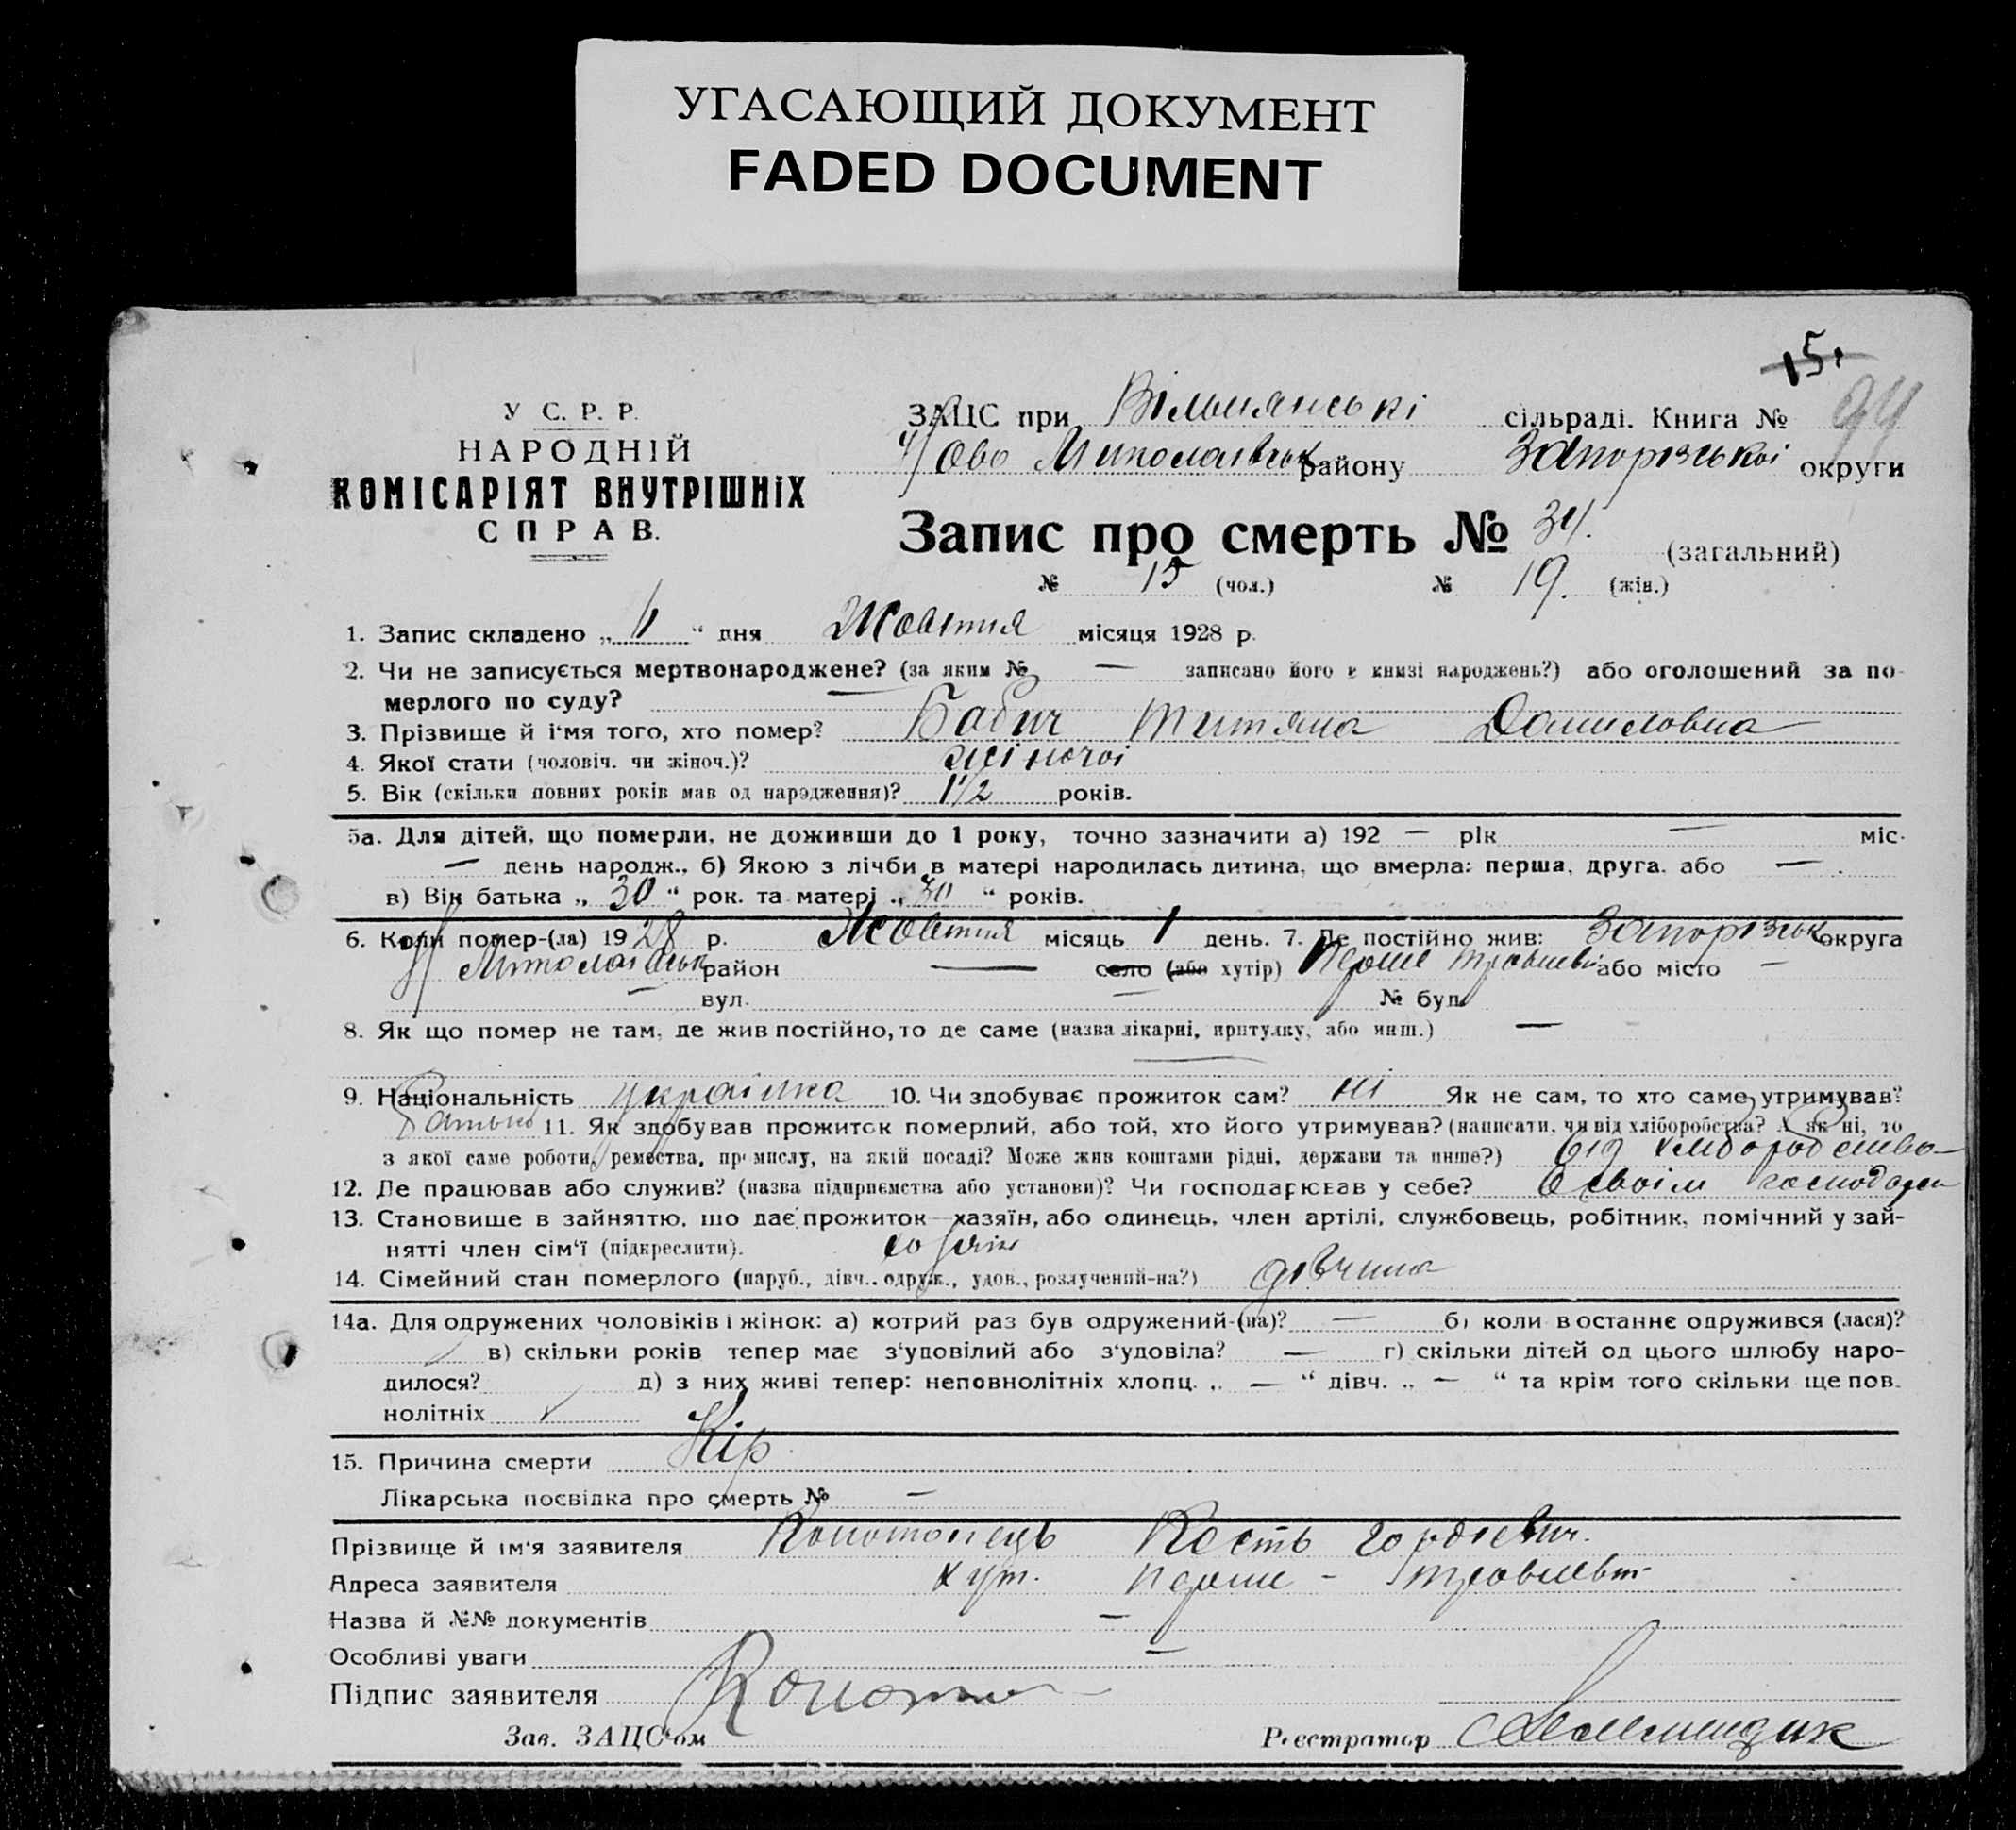 УГАСАЮЩИЙ ДОКУМЕНТ
FADED DOCUMENT
15.
94
У С. Р. Р.
НАРОДНІЙ
КОМІСАРІЯТ ВНУТРІШНІХ
СПРАВ.
ЗАЦС при Вільнянські сільраді. Книга №
Н/Ово Миколаївськ району Запорізькоі округи
Запис про смерть № 34. (загальний)
№ 15 (чол.) № 19. (жін.)
1. Запис складено „ “ дня Жовтня місяця 1928 р.
2. Чи не записується мертвонароджене? (за яким № — записано його в книзі народжень?) або оголошений за по-
мерлого по суду? —
3. Прізвище й і‘мя того, хто помер? Бабич Титяна Даниловна
4. Якої стати (чоловіч. чи жіноч.)? жіночоі
5. Вік (скільки повних років мав од народження)? 1 1/2 років.
5а. Для дітей, що померли, не доживши до 1 року, точно зазначити а) 192 — рік — міс.
— день народж., б) Якою з лічби в матері народилась дитина, що вмерла: перша, друга, або — .
в) Вік батька „ 30 “ рок. та матері „ 30 “ років.
6. Коли помер-(ла) 1928 р. Жовтня місяць 1 день. 7. Де постійно жив: Запорізьк округа
Н/Миколаївськ район — село (або хутір) Перше Травневе або місто —
— вул. — № буд.
8. Як що помер не там, де жив постійно, то де саме (назва лікарні, притулку, або инш.) —
—
9. Національність українка 10. Чи здобуває прожиток сам? ні Як не сам, то хто саме утримував?
Батько 11. Як здобував прожиток померлий, або той, хто його утримував? (написати, чи від хліборобства? А як ні, то
з якої саме роботи, ремества, промислу, на якій посаді? Може жив коштами рідні, держави та инше?) від хліборобство
12. Де працював або служив? (назва підприємства або установи)? Чи господарював у себе? в своім господарстві
13. Становище в зайняттю, що дає прожиток—хазяїн, або одинець, член артілі, службовець, робітник, помічний у зай-
нятті член сім‘ї (підкреслити). хозяін
14. Сімейний стан померлого (паруб., дівч., одруж., удов., розлучений-на?) дівчина
14а. Для одружених чоловіків і жінок: а) котрий раз був одружений-(на)? — б) коли в останнє одружився (лася)?
в) скільки років тепер має з‘удовілий або з‘удовіла? — г) скільки дітей од цього шлюбу наро-
дилося? д) з них живі тепер: неповнолітніх хлопц. „ — “ дівч. „ — “ та крім того скільки ще пов.
нолітніх
15. Причина смерти Кір.
Лікарська посвідка про смерть № —
Прізвище й ім‘я заявителя Конотопець Кость Гордієвич.
Адреса заявителя хут. Перше - Травневе
Назва й №№ документів —
Особливі уваги —
Підпис заявителя Коното
Зав. ЗАЦС‘ом
Реєстратор